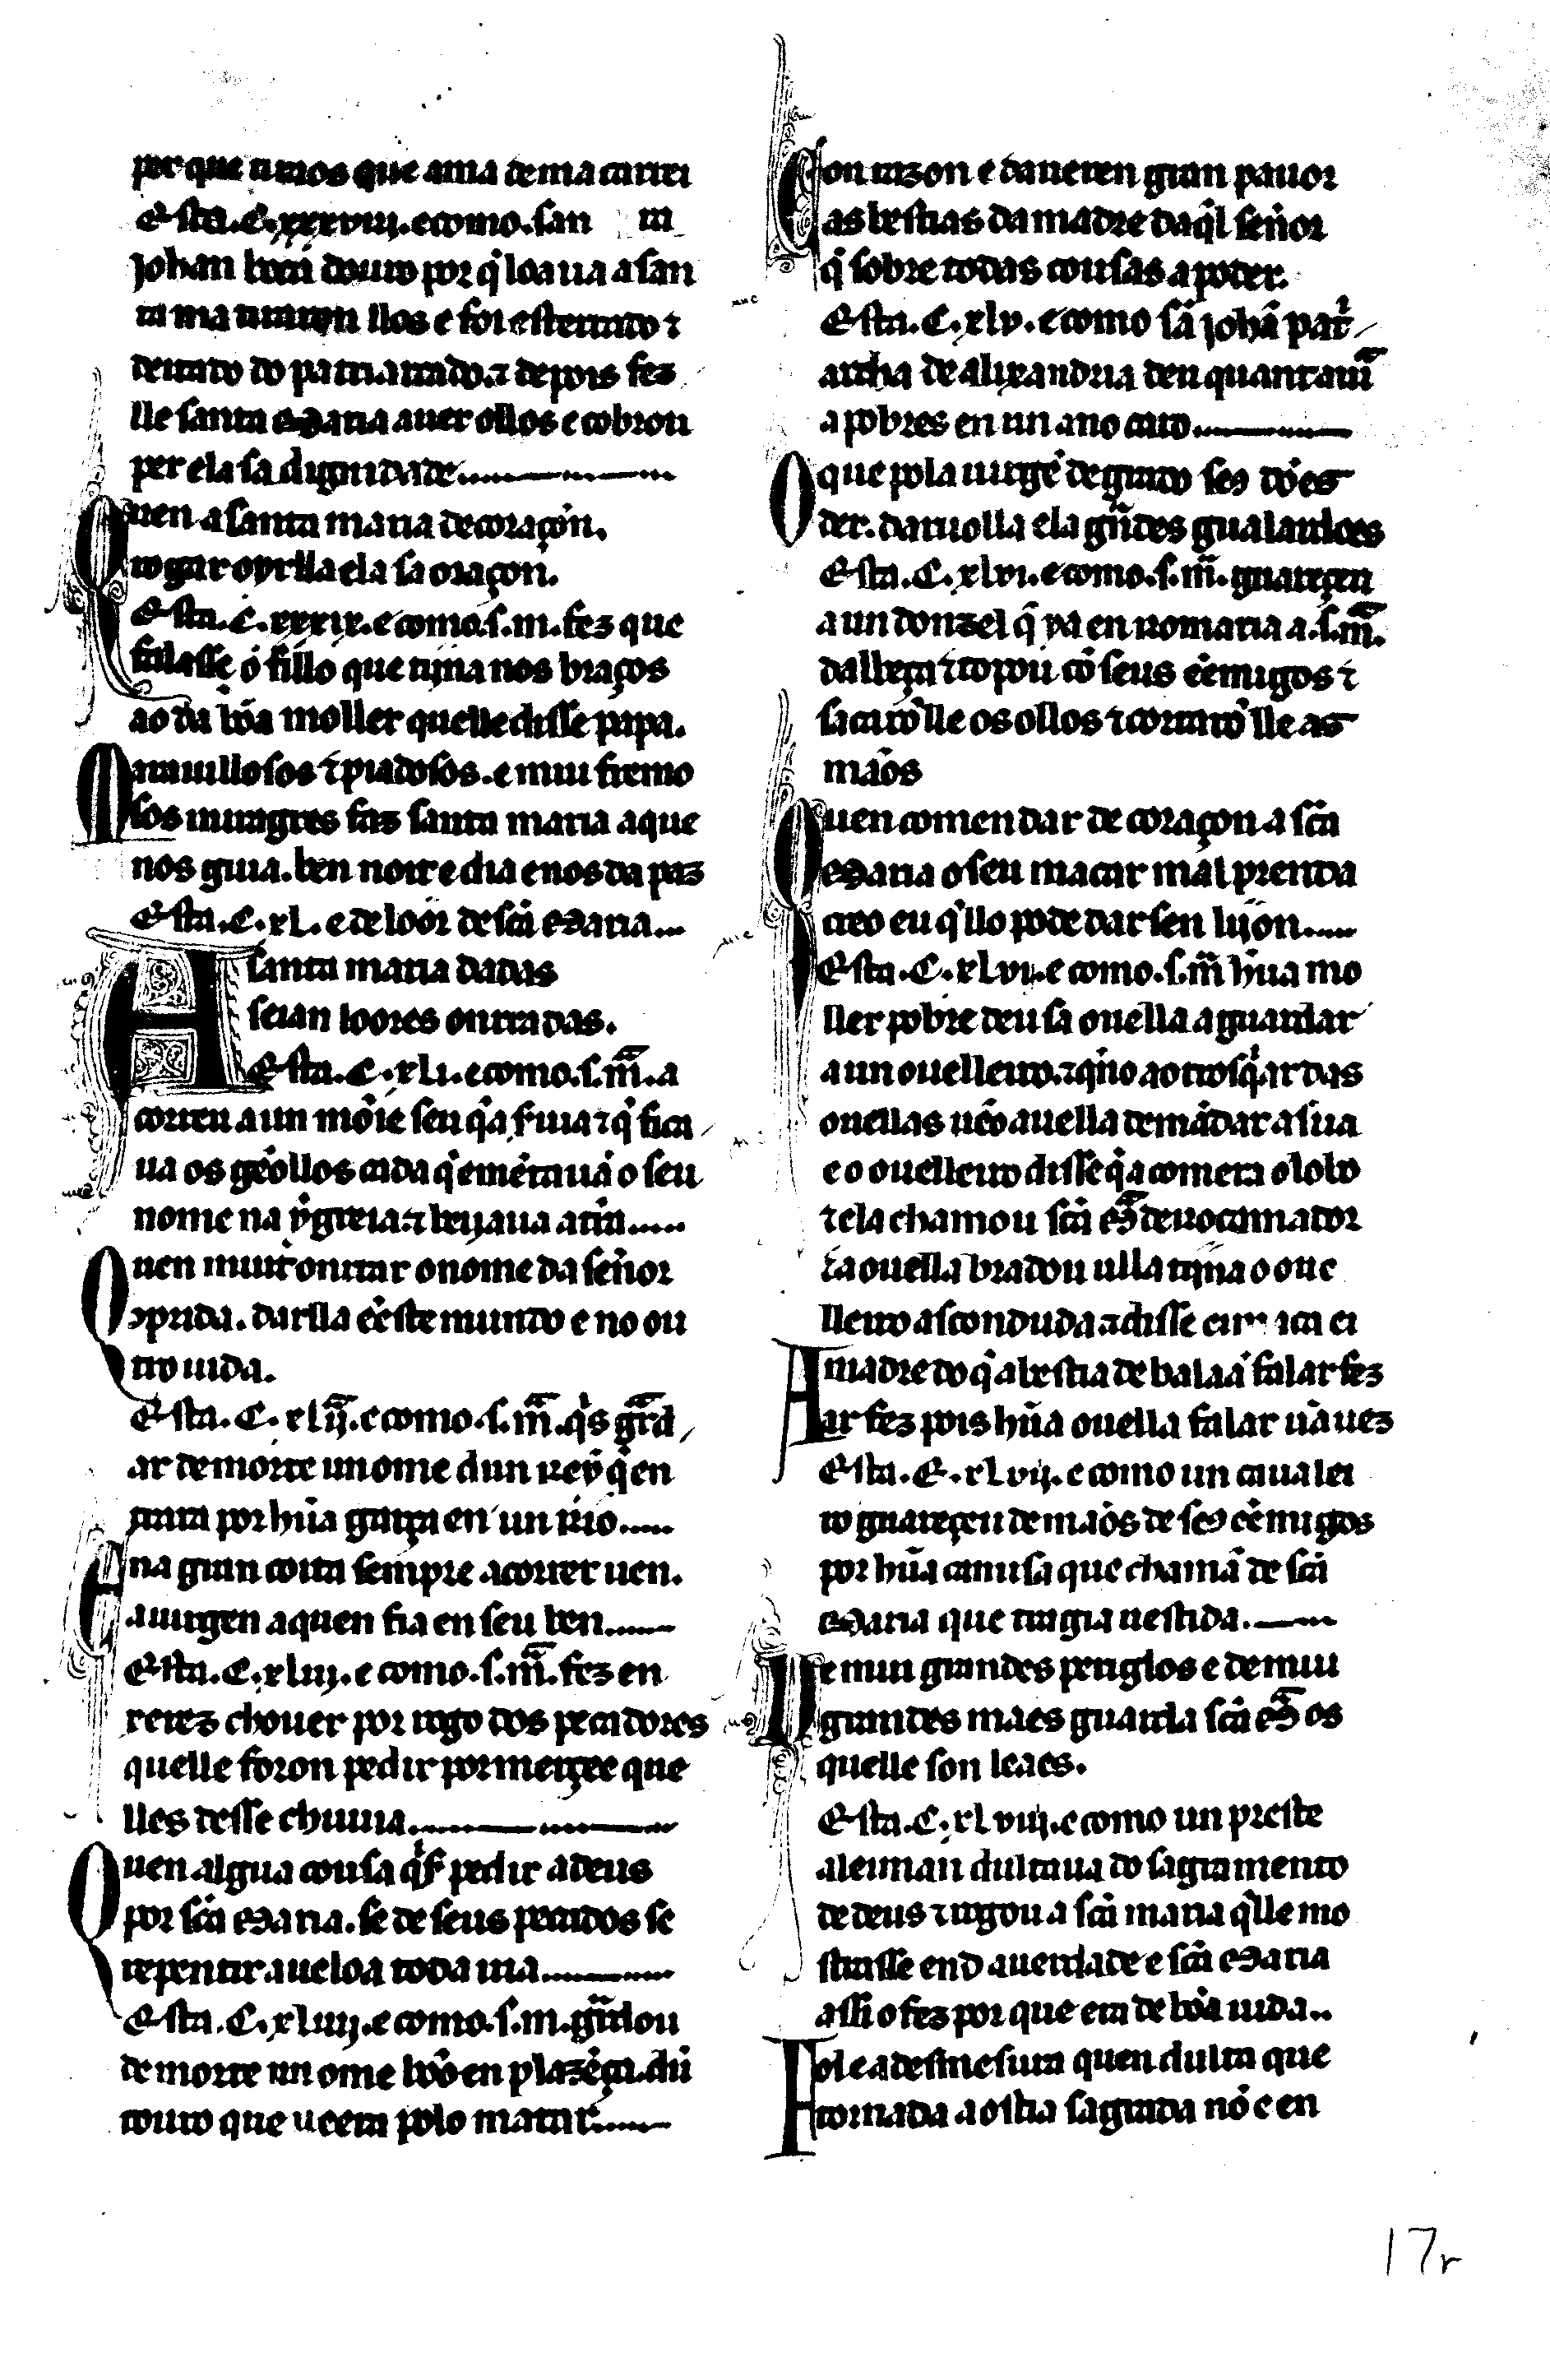 per que uimos que auia de ma carrei
Esta .C. xxxviii. e como. san
Johan boca douro por q̄ loaua a san
ta ma tiraron llos e foi esterrado ⁊
deitado do patriarcado. ⁊ depois fez
lle santa Maria auer ollos e cobrou
per ela sa dignidade
Quen a santa maria de coraçon.
rogar oyrlla ela sa oraçon.
Esta .C. xxxix. e como. s. m. fez que
falasse o fillo que tijna nos braços
ao da bõa moller quelle disse papa.
Marauillosos ⁊ piadosos. e mui fremo
sos miragres faz santa maria a que
nos guia. ben noit e dia e nos da paz
Esta .C. xL. e de loor de scā Maria
A santa maria dadas
seian loores onrradas.
Esta .C. xLi. e como. s. m̄. a
correu a un mõie seu q̄a s̓uia ⁊ q̄ fica
ua os gẽollos cada q̄ emẽtauã o seu
nome na ygreia. ⁊ beijaua a t̓ra
Quen muit onrrar o nome da señor
conprida. darlla ẽ este mundo e no ou
tro uida.
Esta .C. xLij. e como. s. m̄. q̓s gr̄d
ar de morte un ome dun rey q̄ en
trara por hũa garça en un rio
Ena gran coita sempre acorrer uen.
a uirgen a quen fia en seu ben
Esta .C. xLiij. e como. s. m̄. fez en
xerez chouer por rogo dos pecadores
quelle foron pedir por merçee que
lles desse chuuia
Quen algua cousa q̓s̓ pedir a deus
por scā Maria. se de seus pecados se
repentir aueloa toda uia
Esta .C. xLiiij. e como. s. m. gr̄dou
de morte un ome bõo en plazẽça. dũ
touro que ueera polo matar
Con razon e d aueren gran pauor
as bestias da madre daq̄l señor
q̄ sobre todas cousas a poder.
Esta .C. xLv. e como sã johã pat̓
archa de alixandria deu quant auia
a pobres en un ano caro
O que pola uirgẽ de grado seꝯ dões
der. dar uolla ela gr̄des gualardoes
Esta .C. xLvi. e como. s. m̄. guareçeu
a un donzel q̄ ya en romaria a. s. m̄.
dalbeça ⁊ topou cõ seus ẽemigos ⁊
sacarõlle os ollos ⁊ cortarõlle as
mãos
Quen comendar de coraçon a scā
Maria o seu macar mal prenda
creo eu q̄llo pode dar sen lijon
Esta .C. xLvi. e como. s. m̄ hũa mo
ller pobre deu sa ouella a guardar
a un ouelleiro. ⁊ q̄no ao trosq̓ar das
ouellas uẽo a uella demãdar a sua
e o ouelleiro disse q̄a comera o lobo
⁊ ela chamou scā M̄ de rocamador
⁊ a ouella bradou u lla tijna o oue
lleiro asconduda ⁊ disse ei
A madre do q̄ a bestia de balaã falar fez
ar fez pois hũa ouella falar ũa uez
Esta .C. xLvij. e como un caualei
ro guareçeu de mãos de seꝯ ẽemigos
por hũa camisa que chamã de scā
Maria que tragia uestida.
De mui grandes periglos e de mui
grandes maes guarda scā M̄ os
quelle son leaes.
Esta .C. xLviij. e como un preste
aleiman dultaua do sagramento
de deus ⁊ rogou a scā maria q̄lle mo
strasse end a uerdade e scā Maria
assi o fez por que era de bõa uida..
Fol e a desmesura quen dulta que
tornada a ostia sagrada nõ e en
17r